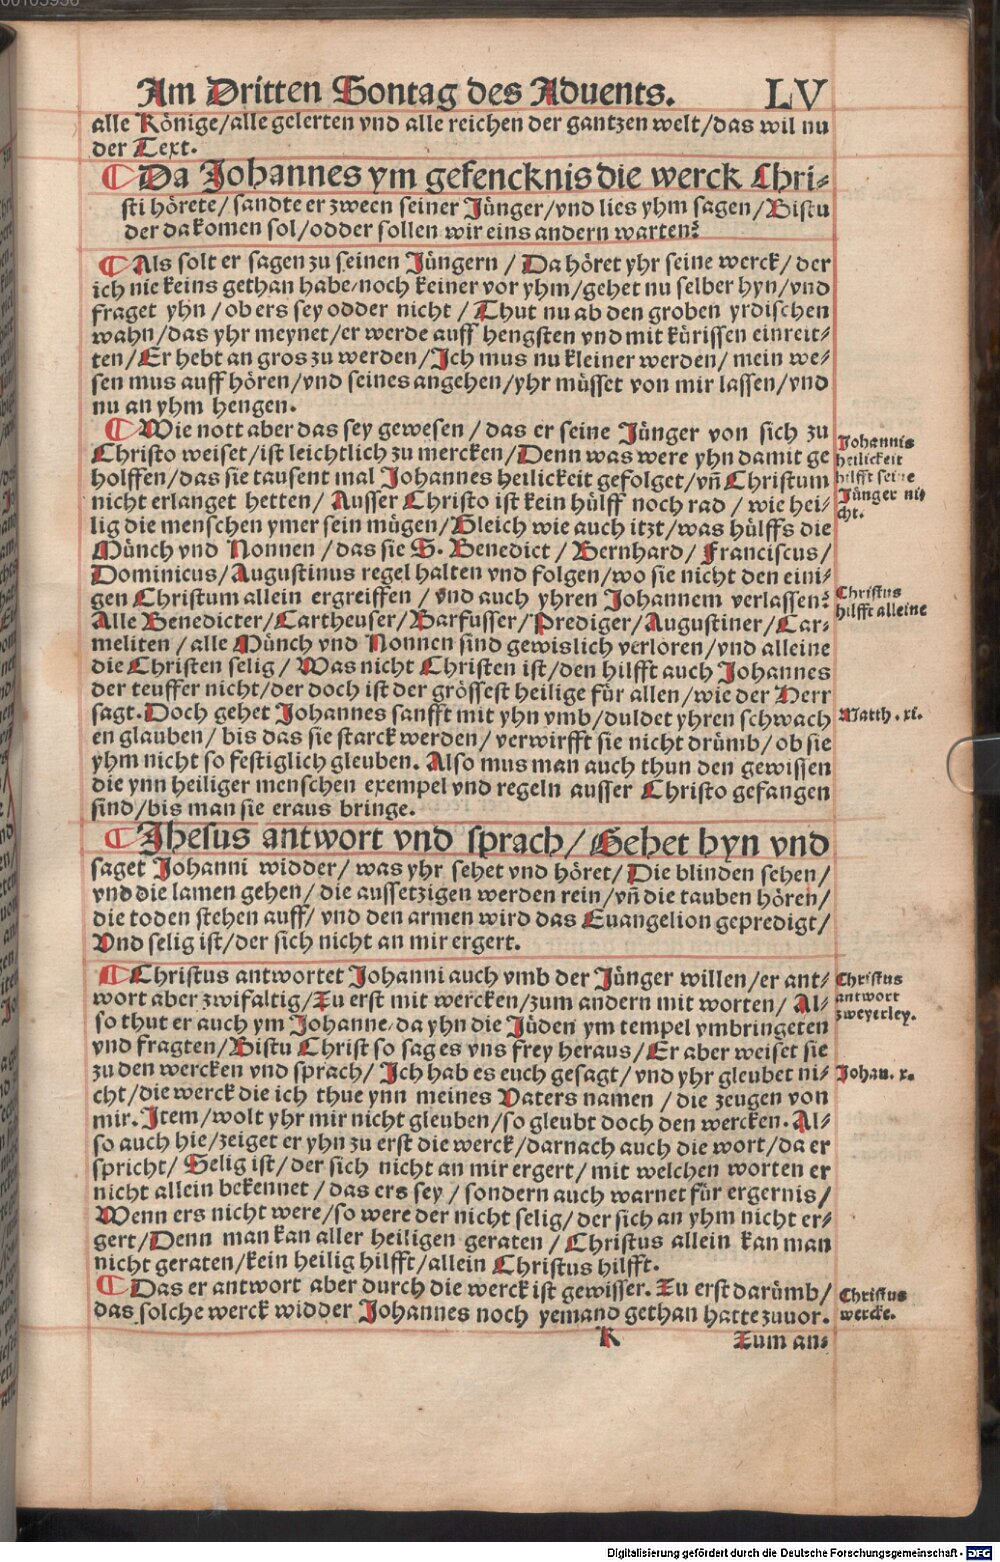 00103956
Am Dritten Sontag des Aduents. LV
alle Könige/alle gelerten vnd alle reichen der gantzen welt/das wil nu
der Text.
¶ Da Johannes ym gefencknis die werck Chri-
sti hörete/ sandte er zween seiner Jünger/vnd lies yhm sagen/Bistu
der da komen sol/odder sollen wir eins andern warten?
¶ Als solt er sagen zu seinen Jüngern / Da höret yhr seine werck/ der
ich nie keins gethan habe/noch keiner vor yhm/gehet nu selber hyn/vnd
fraget yhn / ob ers sey odder nicht / Thut nu ab den groben yrdischen
wahn/das yhr meynet/er werde auff hengsten vnd mit kürissen einreit-
ten/Er hebt an gros zu werden/Ich mus nu kleiner werden/ mein we-
sen mus auff hören/vnd seines angehen/yhr müsset von mir lassen/vnd
nu an yhm hengen.
¶ Wie nott aber das sey gewesen / das er seine Jünger von sich zu
Christo weiset/ist leichtlich zu mercken/Denn was were yhn damit ge
holffen/das sie tausent mal Johannes heilickeit gefolget/vn̄ Christum
nicht erlanget hetten/ Ausser Christo ist kein hülff noch rad / wie hei-
lig die menschen ymer sein mügen/Gleich wie auch itzt/was hülffs die
Münch vnd Nonnen / das sie S. Benedict / Bernhard/ Franciscus/
Dominicus/Augustinus regel halten vnd folgen/wo sie nicht den eini-
gen Christum allein ergreiffen / vnd auch yhren Johannem verlassen?
Alle Benedicter/Cartheuser/Barfusser/Prediger/Augustiner/Car-
meliten / alle Münch vnd Nonnen sind gewislich verloren/vnd alleine
die Christen selig / Was nicht Christen ist/den hilfft auch Johannes
der teuffer nicht/der doch ist der grössest heilige für allen/wie der Herr
sagt. Doch gehet Johannes sanfft mit yhn vmb/duldet yhren schwach
en glauben/ bis das sie starck werden/ verwirfft sie nicht drümb/ ob sie
yhm nicht so festiglich gleuben. Also mus man auch thun den gewissen
die ynn heiliger menschen exempel vnd regeln ausser Christo gefangen
sind/bis man sie eraus bringe.
Johannis
heilickeit
hilfft seine
Jünger ni-
cht.
Christus
hilfft alleine
Matth. xi.
¶ Jhesus antwort vnd sprach/ Gehet hyn vnd
saget Johanni widder/ was yhr sehet vnd höret/ Die blinden sehen/
vnd die lamen gehen/ die aussetzigen werden rein/vn̄ die tauben hören/
die toden stehen auff/ vnd den armen wird das Euangelion gepredigt/
Vnd selig ist/der sich nicht an mir ergert.
¶ Christus antwortet Johanni auch vmb der Jünger willen/er ant-
wort aber zwifaltig/Zu erst mit wercken/zum andern mit worten/ Al-
so thut er auch ym Johanne/da yhn die Jüden ym tempel vmbringeten
vnd fragten/Bistu Christ so sag es vns frey heraus/Er aber weiset sie
zu den wercken vnd sprach/ Ich hab es euch gesagt/vnd yhr gleubet ni-
cht/die werck die ich thue ynn meines Vaters namen / die zeugen von
mir. Item/wolt yhr mir nicht gleuben/so gleubt doch den wercken. Al-
so auch hie/zeiget er yhn zu erst die werck/darnach auch die wort/da er
spricht/ Selig ist/der sich nicht an mir ergert/mit welchen worten er
nicht allein bekennet / das ers sey / sondern auch warnet für ergernis/
Wenn ers nicht were/so were der nicht selig/der sich an yhm nicht er-
gert/Denn man kan aller heiligen geraten / Christus allein kan man
nicht geraten/kein heilig hilfft/allein Christus hilfft.
¶ Das er antwort aber durch die werck ist gewisser. Zu erst darümb/
das solche werck widder Johannes noch yemand gethan hatte zuuor.
Christus
antwort
zweyerley.
Johan. x.
Christus
wercke.
K Zum an-
Digitalisierung gefördert durch die Deutsche Forschungsgemeinschaft - DFG